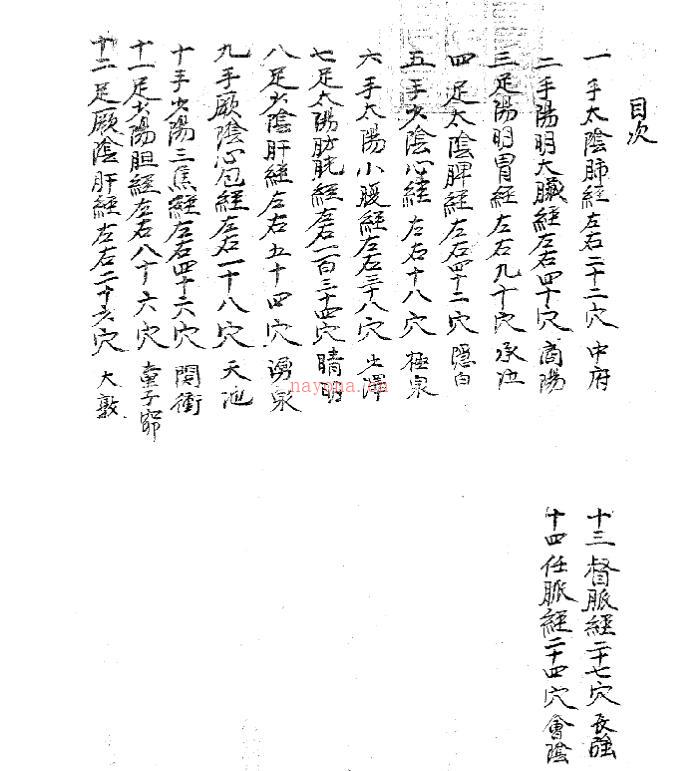 目次
一 手太陰肺經左右二十二穴 中府
二 手陽明大臓經左右四十穴 商陽
三 足陽明胃經左右九十穴 承泣
四 足太陰脾經左右四十二穴 隱白
五 手少陰心經 左右十八穴 極泉
六 手太陽小腹經左右三十八穴 少澤
七 足太陽肪胱經左右一百三十四穴 睛明
八 足少陰肝經左右五十四穴 湧泉
九 手厥陰心包經左右一十八穴 天池
十 手少陽三焦經左右四十六穴 関衝
十一 足少陽胆經左右八十六穴 童子窌
十二 足厥陰肝經左右二十六穴 大敦
十三 督脈經二十七穴 長強
十四 任脈經二十四穴 會陰
nayona.cn